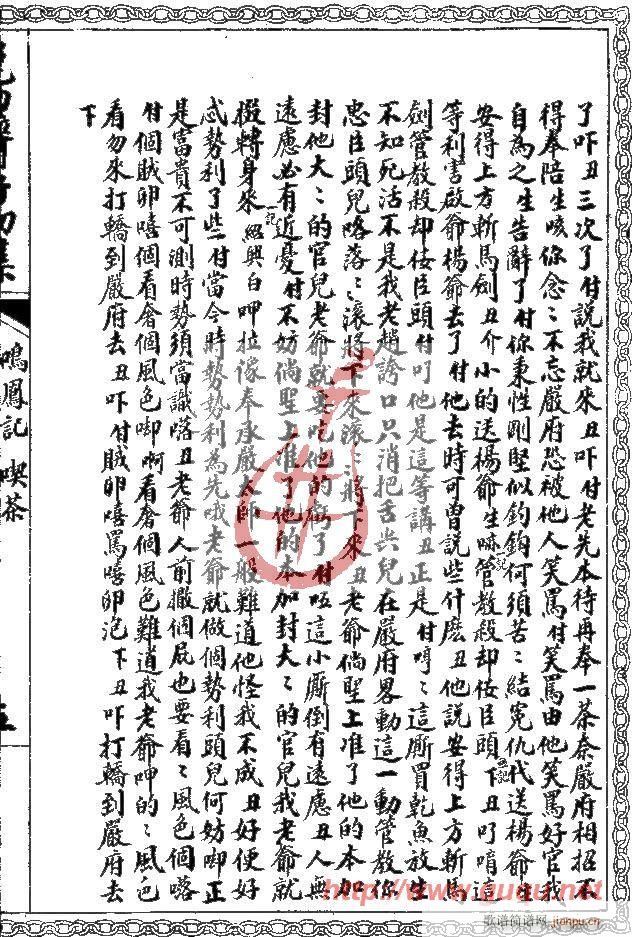 了吓丑三次了付説我就來丑吓付老先本待再奉一茶奈嚴府相招不
得奉陪生咳你念〻不忘嚴府恐被他人笑罵付笑罵由他笑罵好官我
自為之生告辭了付你秉性剛堅似鈎鈎何須苦〻結冤仇代送楊爺生
安得上方斬馬劍丑介小的送楊爺生嘛管教殺却佞臣頭下丑叮唷這
等利害啟爺楊爺去了付他去時可曾説些什麽丑他説安得上方斬馬
劍管教殺却佞臣頭付叮他是這等講丑正是付哼〻這厮買乾魚放生
不知死活不是我老趙誇口只消把舌尖兒在嚴府畧動這一動管教你
忠臣頭兒咯落〻滚將下來滚〻將下來丑老爺倘聖上准了他的本加
封他大〻的官兒老爺就要吃他的虧了付唔這小厮倒有遠慮丑人無
遠慮必有近憂付不妨倘聖上准了他的本加封大〻的官兒我老爺就
掇轉身來紹興白呷拉像奉承嚴太師一般難道他怪我不成丑好便好
忒勢利了些付當今時勢勢利為先哦老爺就做個勢利頭兒何妨啣正
是富貴不可測時勢須當識咯丑老爺人前撒個屁也要看〻風色個咯
付個賊卵嘻個看奢個風色啣啊看奢個風色難道我老爺呻的〻風色
看勿來打轎到嚴府去丑吓付賊卵嘻罵嘻卵泡下丑吓打轎到嚴府去
下
鳴鳳記 喫茶
五
http://www.ququ.net
歌谱简谱网
jianpu.cn